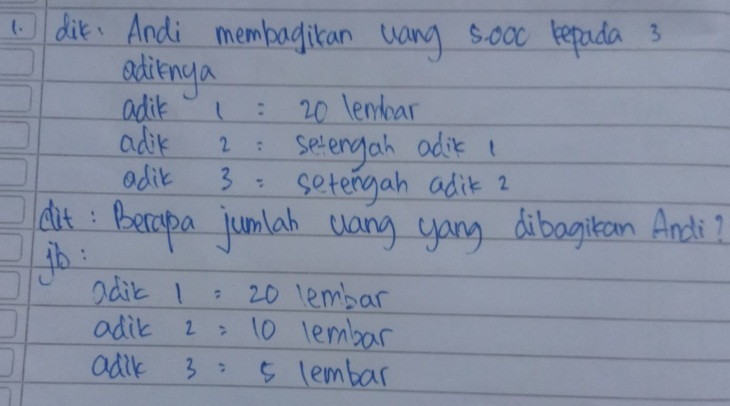 1. dik. Andi membagikan uang 5.000 kepada 3
adiknya
adik 1 = 20 lembar
adik 2 = setengah adik 1
adik 3 = setengah adik 2
dit : Berapa jumlah uang yang dibagikan Andi?
jb :
adik 1 = 20 lembar
adik 2 = 10 lembar
adik 3 = 5 lembar